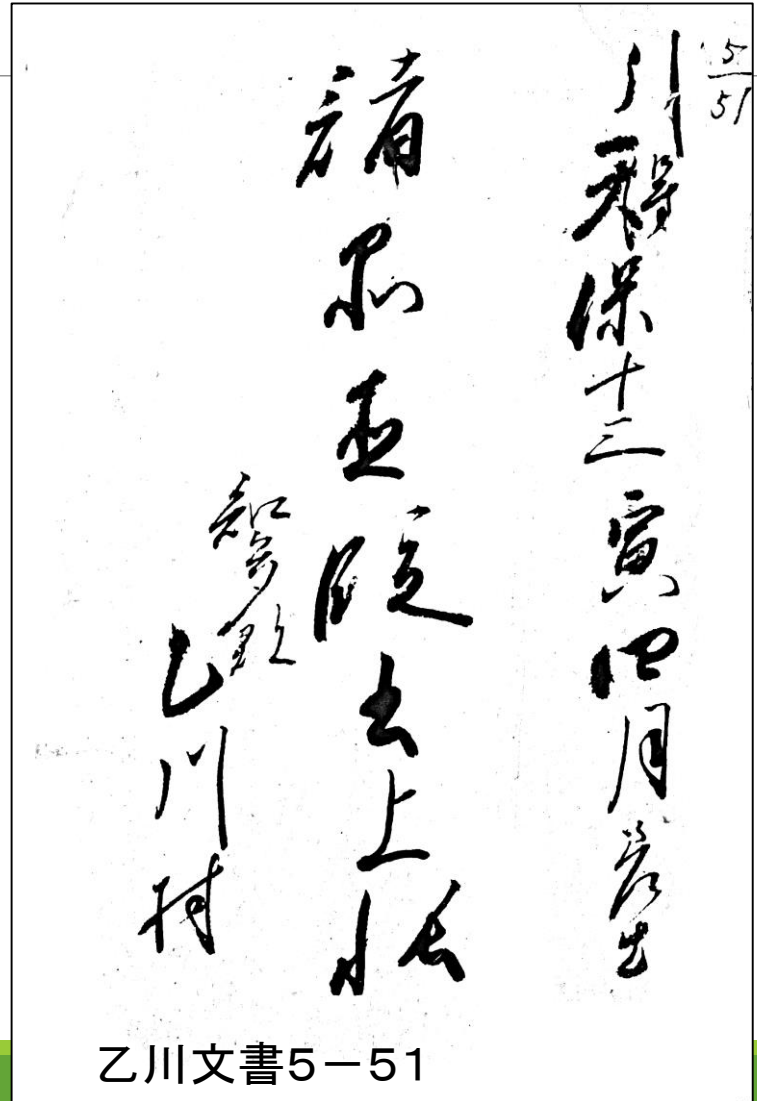 5/51
天保十三寅四月差出
諸品直段書上帳
知多郡
乙川村
乙川文書5－51